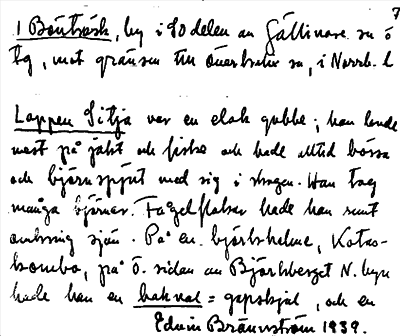 7
1 Bönträsk, by i SO delen av Gällivare sn ö
tg, mot gränsen till Överkalix sn, i Norrb. l
Lappen Sitja var en elak gubbe; han levde
mest på jakt och fiske och hade alltid bössa
och björnspjut med sig i skogen. Han tog
många björnar. Fågelflakar hade han runt
omkring sjön. På en björkholme, Kotas-
bombo, på Ö. sidan av Björkberget N. byn
hade han en = och en
Edvin Brännström 1939.